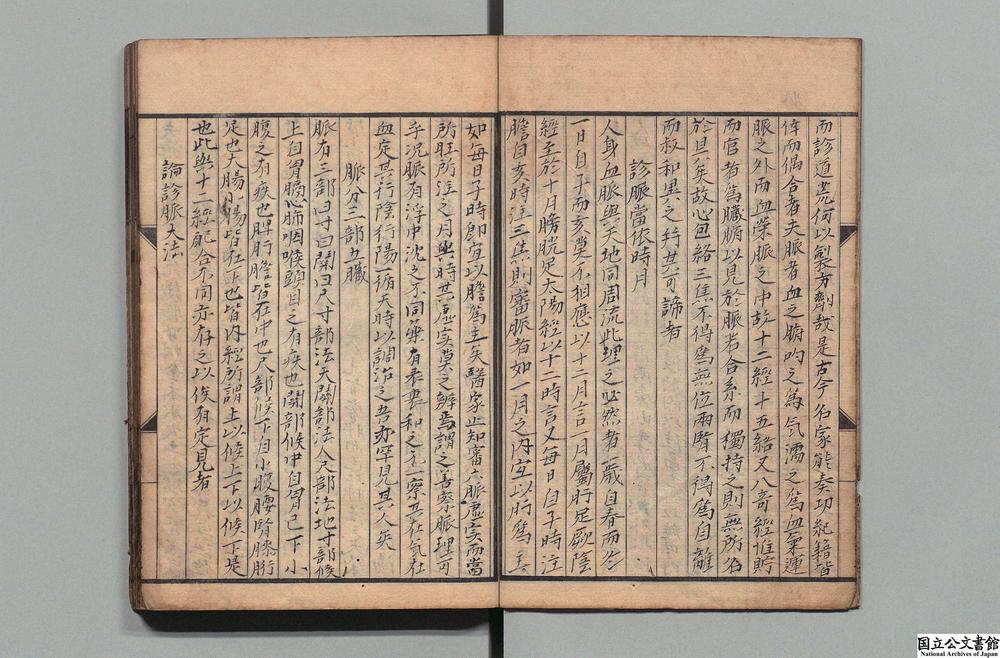 而診道荒何以製方劑哉是古今名家能奏功紀籍皆
倖而偶合者夫脈者血之腑昀之為气濡之為血氣運
脈之外而血榮脈之中故十二經十五絡又八奇經惟貯
而官者為臟腑以見於脈若合系而獨持之則無所名
於旦矣故心包絡三焦不得為無位兩腎不得為自離
而叔和異之稱其可諦者
診脈當依時月
人身血脈與天地同周流此理之必然者一歲自春而冬
一日自子而亥莫不相應以十二月言一月屬肝足厥陰
經至於十月膀胱足太陽經以十二時言又每日自子時注
膽自亥時注三焦則審脈者如一月之內宜以肝為主
如每日子時即宜以膽為主矣醫家止知審六脈虛实而當
所旺所注之月與時其虛实莫之辨焉謂之善察脈理可
乎況脈有浮中沈之不同藥有表裏和之不一察其在气在
血定其行陰行陽一循天時以調治之吾亦罕見其人矣
脈分三部五臟
脈有三部曰寸曰関曰尺寸部法天関部法人尺部法地寸部候
上自胃膻心肺咽喉頭目之有疾也関部候中自胃已下小
腹之有疾也脾肝膽皆在中也尺部候下自小腹腰腎膝胻
足也大腸小腸皆在下也皆內經所謂上以候上下以候下是
也此與十二經配合不同亦存之以俟有定見者
論診脈大法
国立公文書館
National Archives of Japan